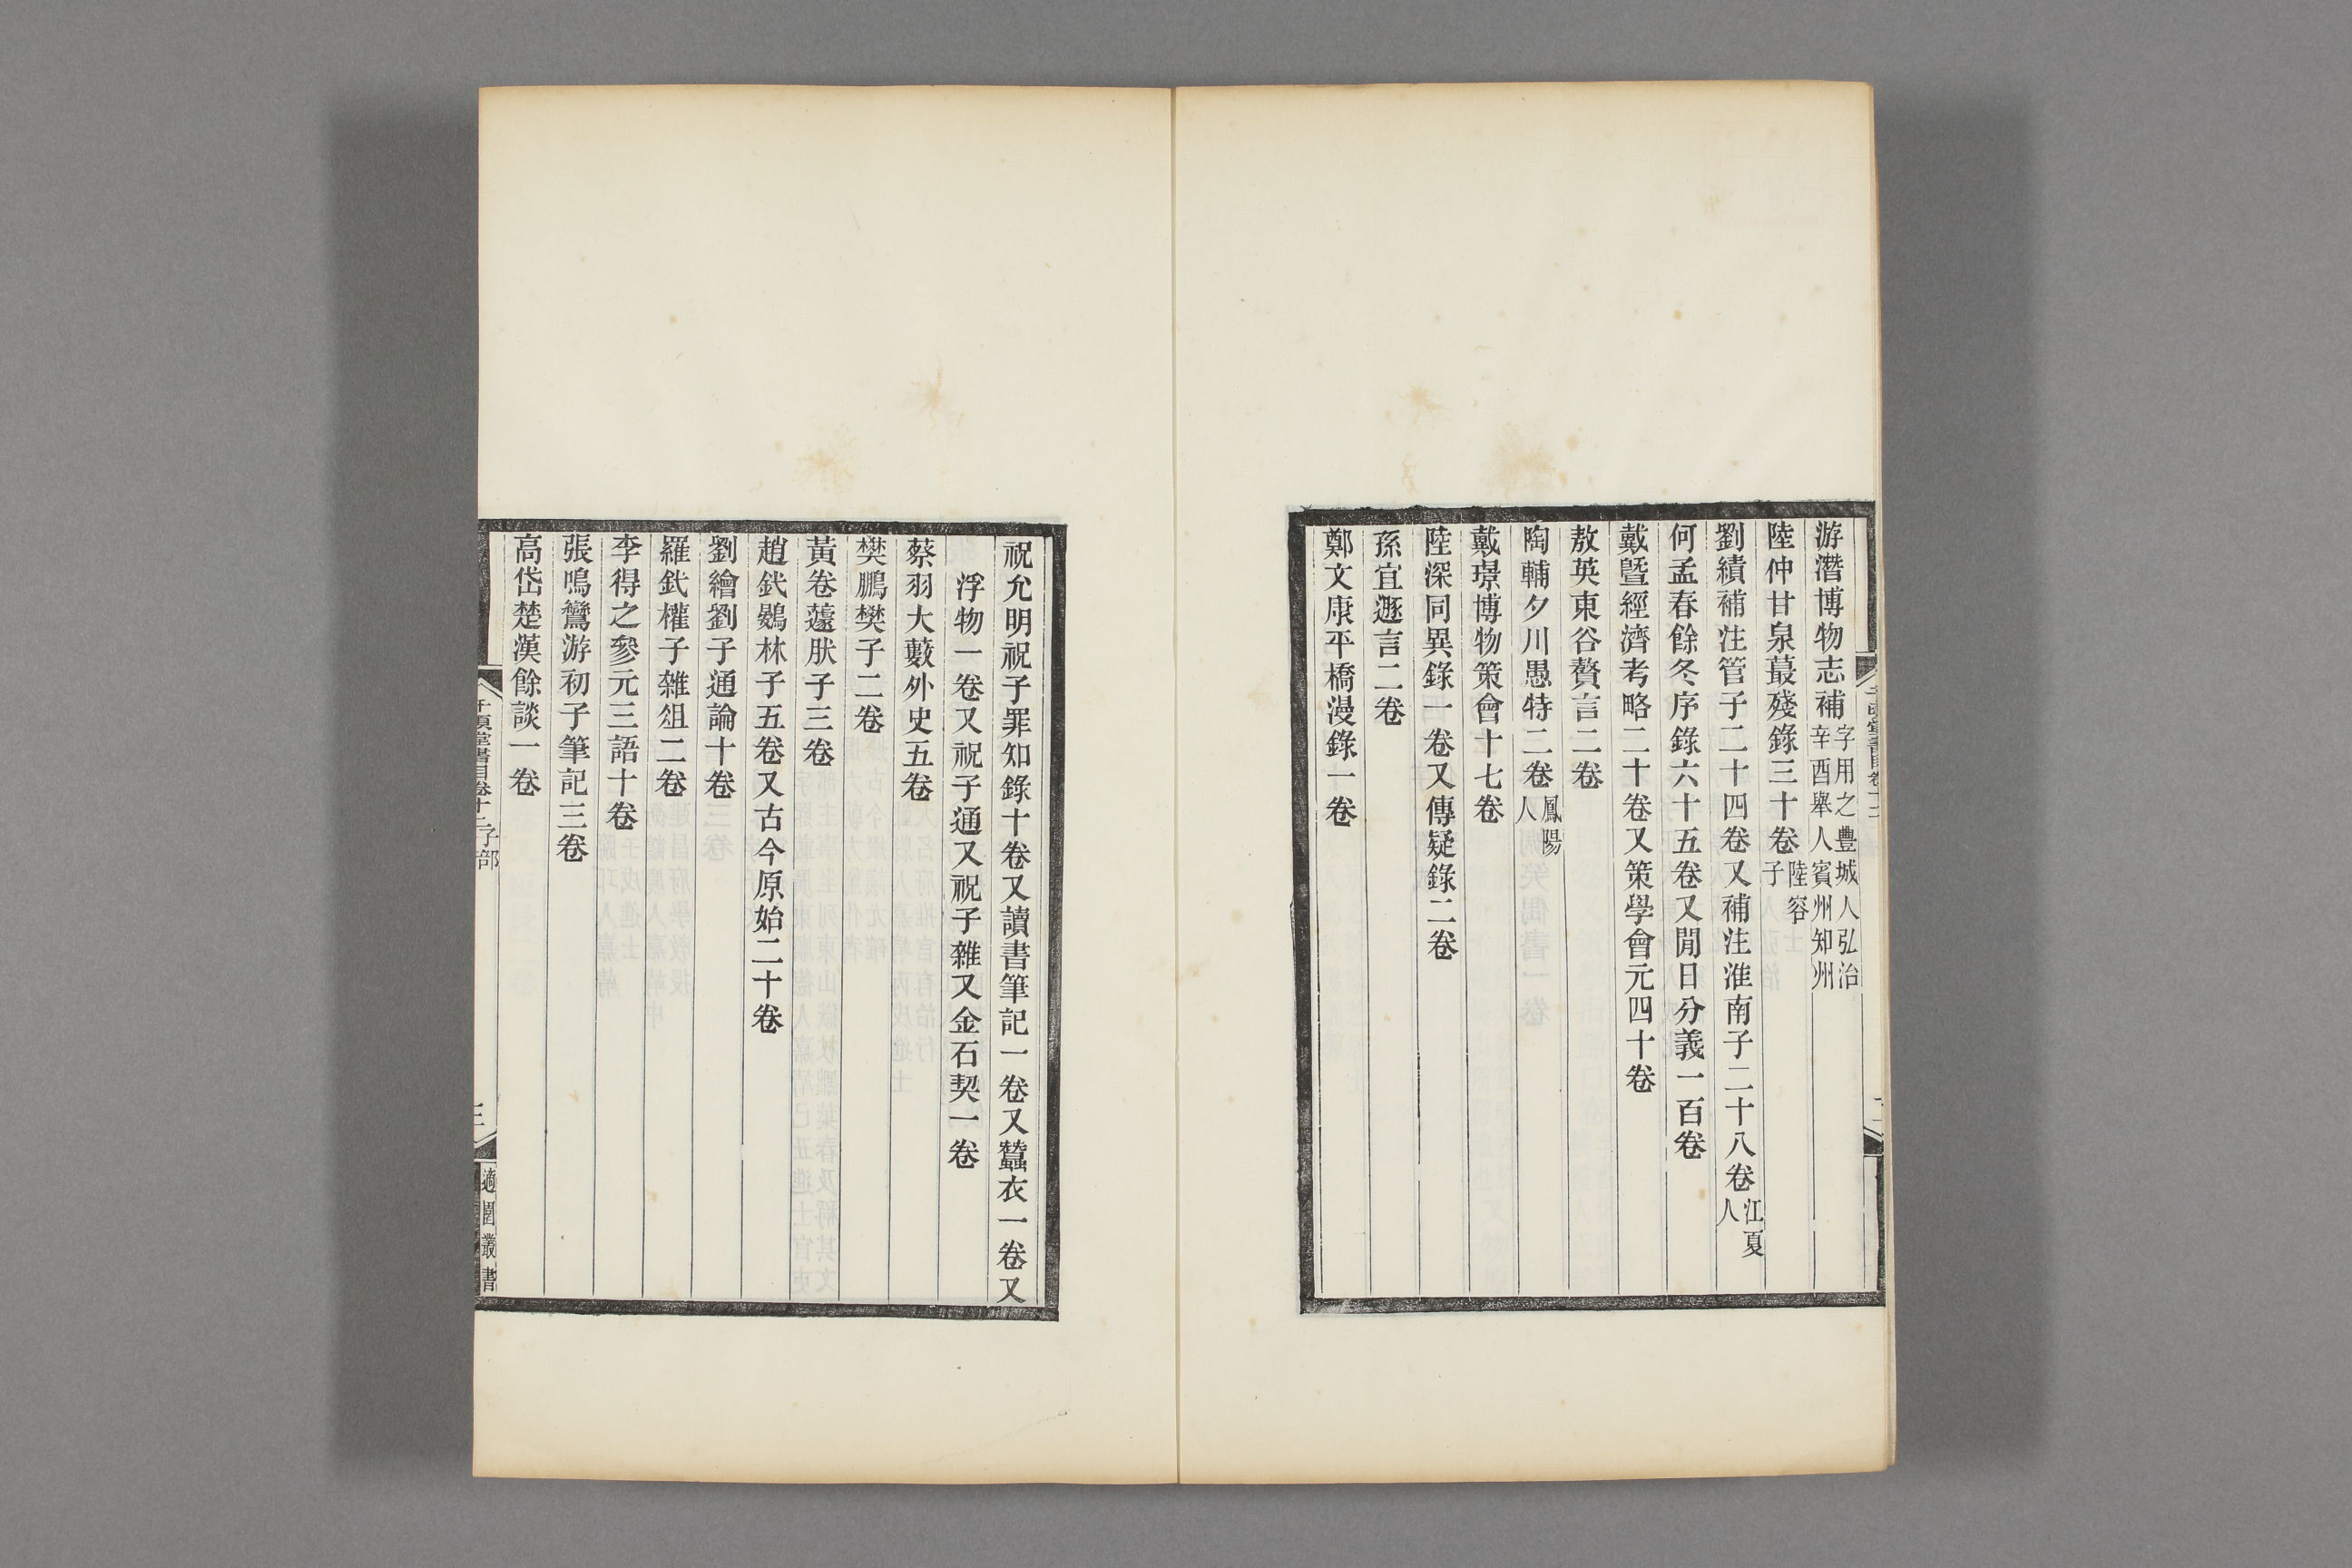 游潛博物志補字用之豊城人弘治辛酉舉人賓州知州
陸仲甘泉蕞殘錄三十卷陸容子
劉績補注管子二十四卷又補注淮南子二十八卷江夏人
何孟春餘冬序錄六十五卷又閒日分義一百卷
戴暨經濟考略二十卷又策學會元四十卷
敖英東谷贅言二卷
陶輔夕川愚特二卷鳳陽人
戴璟博物策會十七卷
陸深同異錄一卷又傳疑錄二卷
孫宜遯言二卷
鄭文康平橋漫錄一卷
祝允明祝子罪知錄十卷又讀書筆記一卷又蠶衣一卷又
浮物一卷又祝子通又祝子雜又金石契一卷
蔡羽大藪外史五卷
樊鵬樊子二卷
黃卷蘧肤子三卷
趙釴鷃林子五卷又古今原始二十卷
劉繪劉子通論十卷
羅釴權子雜俎二卷
李得之參元三語十卷
張鳴鸞游初子筆記三卷
高岱楚漢餘談一卷
千頃堂書目卷十二子部
三
適園叢書